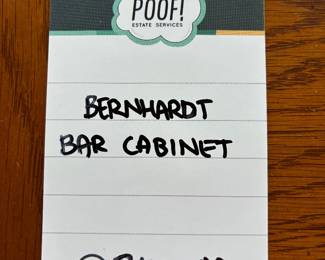 POOF!
ESTATE SERVICES
BERNHARDT
BAR CABINET